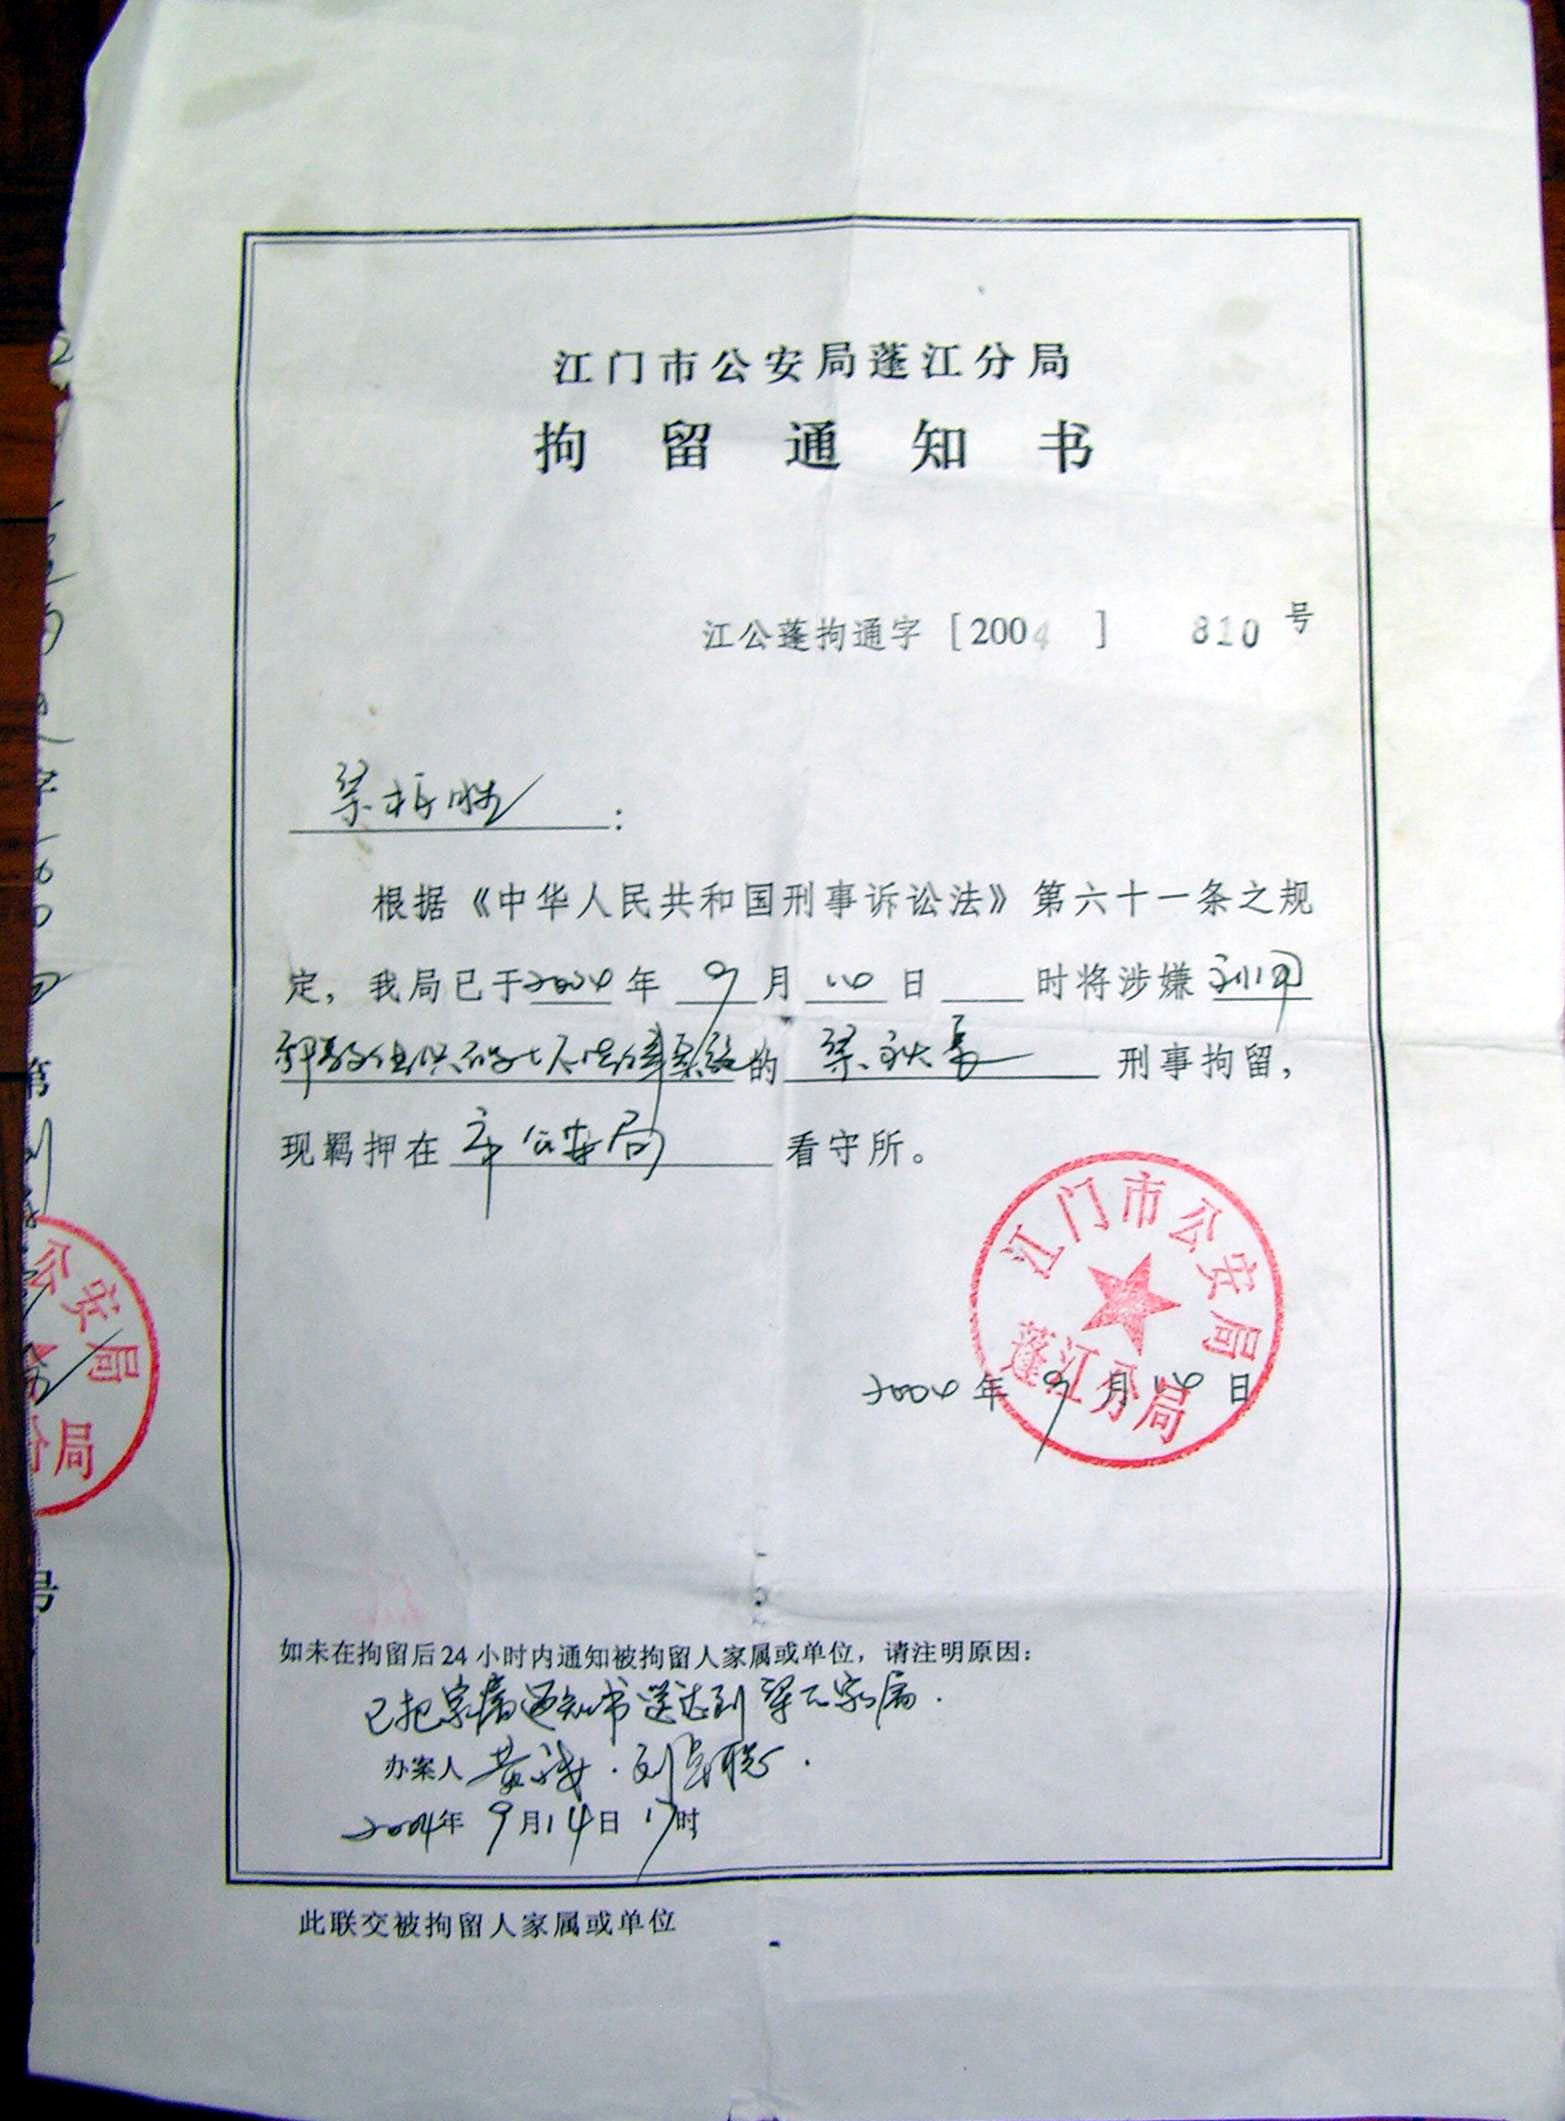 江门市公安局蓬江分局
拘留通知书
江公蓬拘通字[2004]810号
梁
:
根据《中华人民共和国刑事诉讼法》第六十一条之规
定,我局已于2004年9月10日 时将涉嫌利用
邪教组织破坏法律实施的梁秋 刑事拘留,
现羁押在市公安局看守所。
江门市公安局
蓬江分局
2004年9月10日
如未在拘留后24小时内通知被拘留人家属或单位,请注明原因:
已把家属通知书送达到 家属.
办案人 黄 . 刘 聪.
2004年9月14日17时
此联交被拘留人家属或单位
第
公安局
分局
号